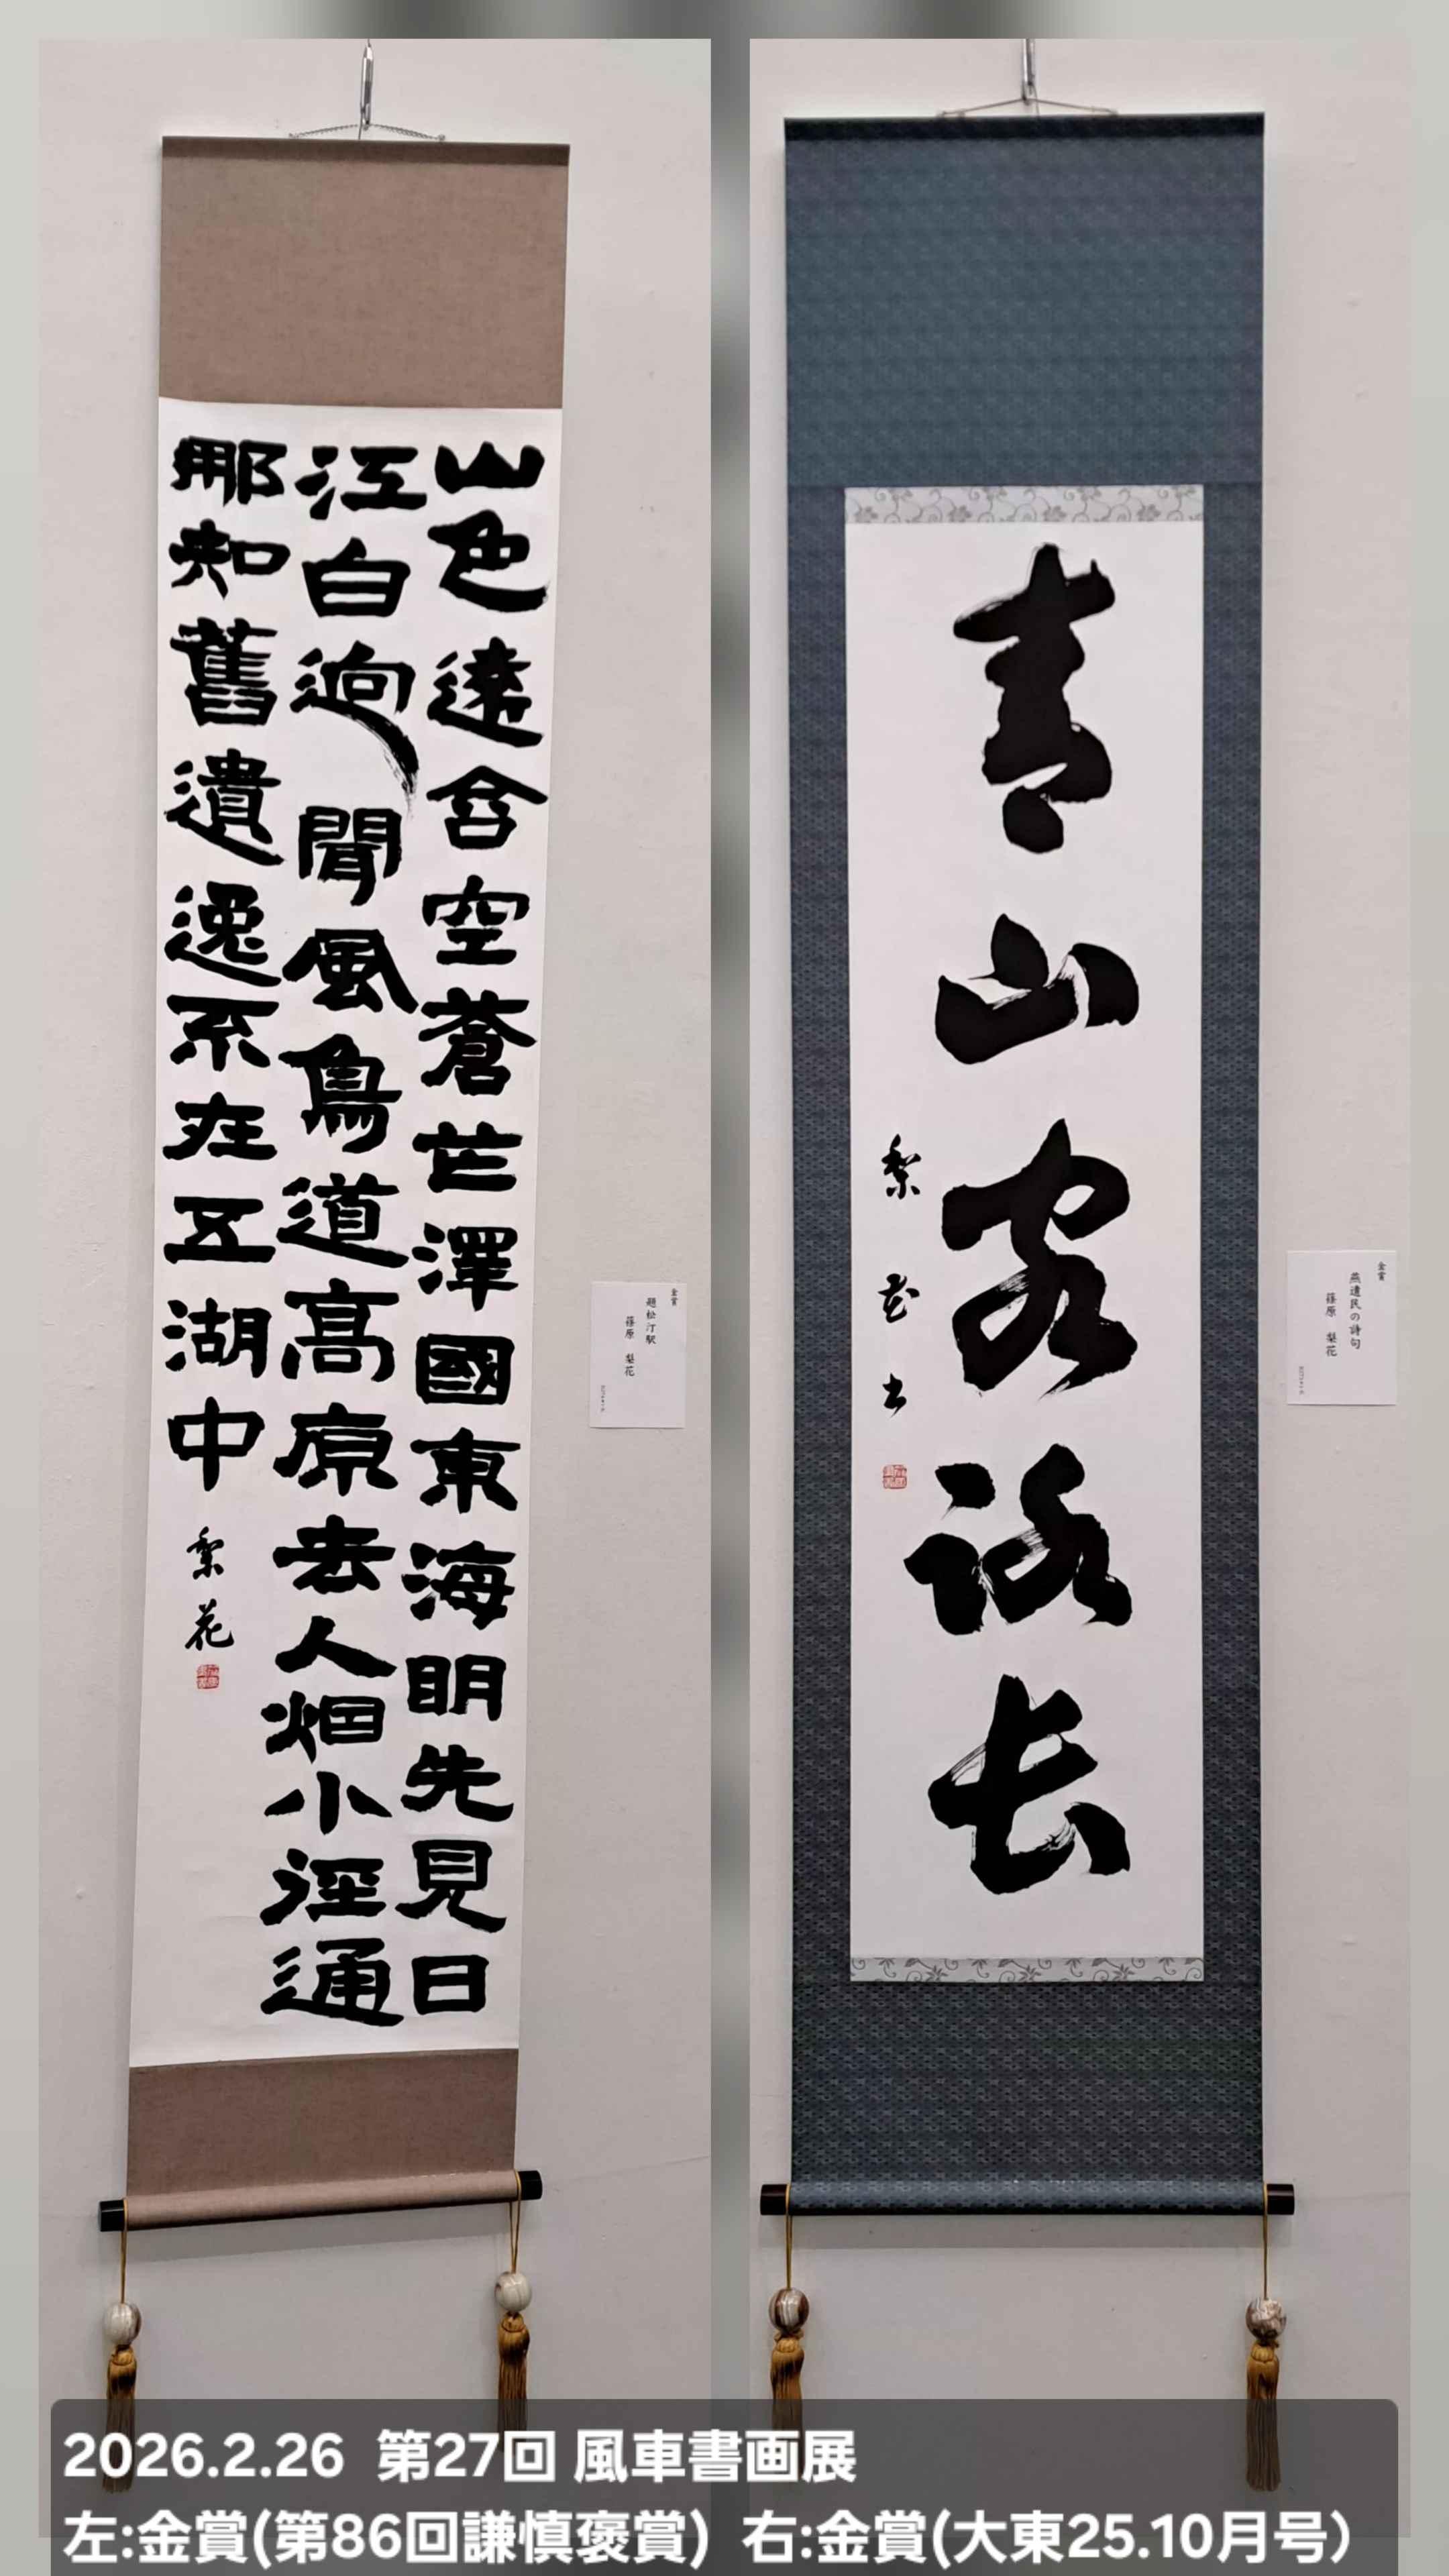 山色遠含空蒼芒澤國東海明先見日
江白逈聞風鳥道高原去人烟小徑通
那知舊遺逸不在五湖中
梨花
金賞
題松汀駅
篠原 梨花
青山客路長
梨花
金賞
燕遺民の詩句
篠原 梨花
2026.2.26 第27回 風車書画展
左:金賞(第86回謙慎褒賞) 右:金賞(大東25.10月号)